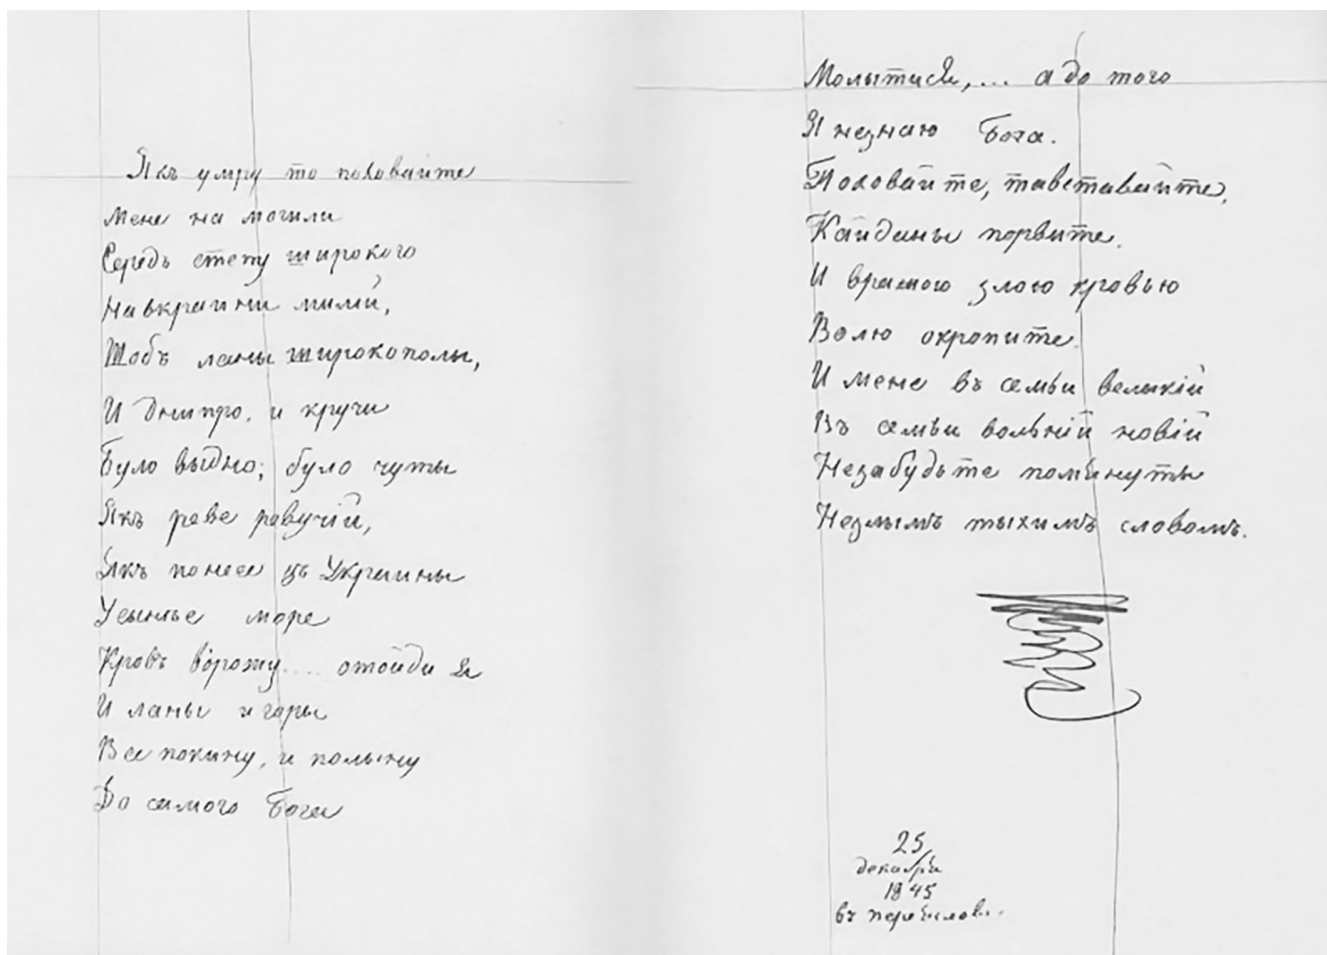 Якъ умру то поховайте
Мене на могили
Середь степу широкого
На вкраини милій,
Щобъ ланы широкополы,
И Днипро, и кручи
Було выдно; було чуты
Якъ реве ревучій,
Якъ понесе зъ Украины
У сынѣе море
Кровъ ворожу.... отойди я
И ланы и горы
Все покину, и полыну
До самого Бога
Молытися,... а до того
Я незнаю Бога.
Поховайте, та вставайте,
Кайданы порвите.
И вражою злою кровью
Волю окропите.
И мене въ семьи великій
Въ семьи вольній новій
Незабудьте помянуты
Незлымъ тыхимъ словомъ.
25
декабря
1845
въ